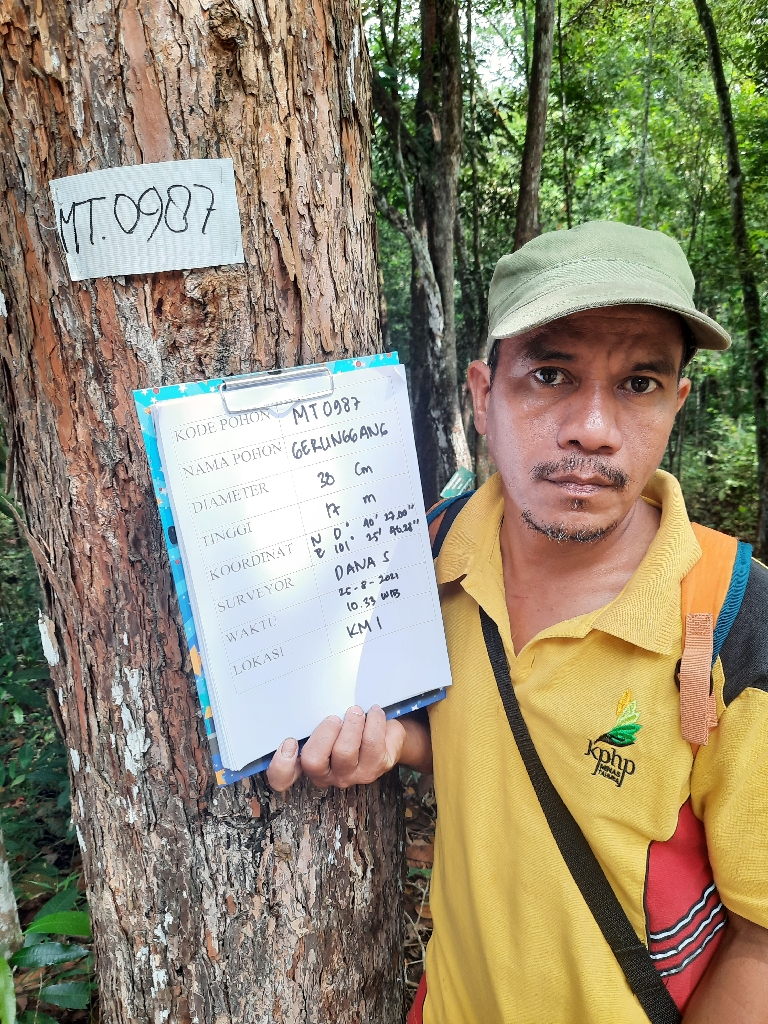 MT.0987
KODE POHON MT0987
NAMA POHON GERUNGGANG
DIAMETER 38 Cm
TINGGI 17 m
KOORDINAT N 0° 40' 27.00"
E 101° 25' 46.28"
SURVEYOR DANA S
WAKTU 25-8-2021
10.33 WIB
LOKASI KM 1
kphp
MINAS
TAHURA